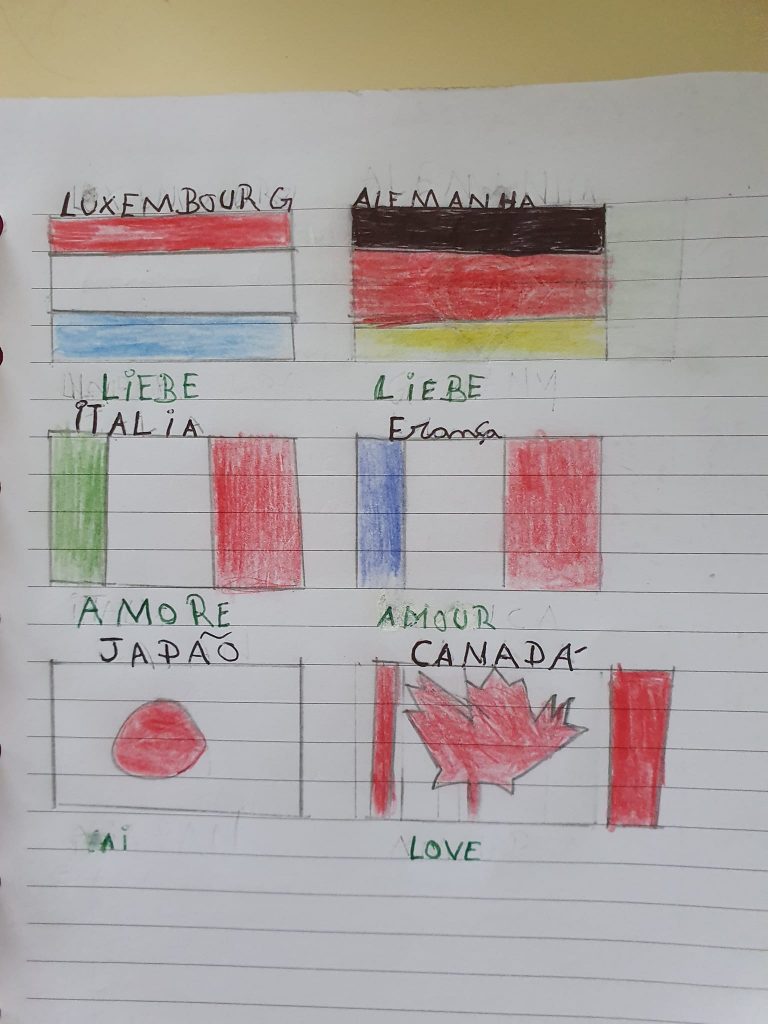 LUXEMBOURG
ALEMANHA
LiEBE
LiEBE
iTALiA
França
AMORE
AMOUR
JAPÃO
CANADÁ
Ai
LOVE